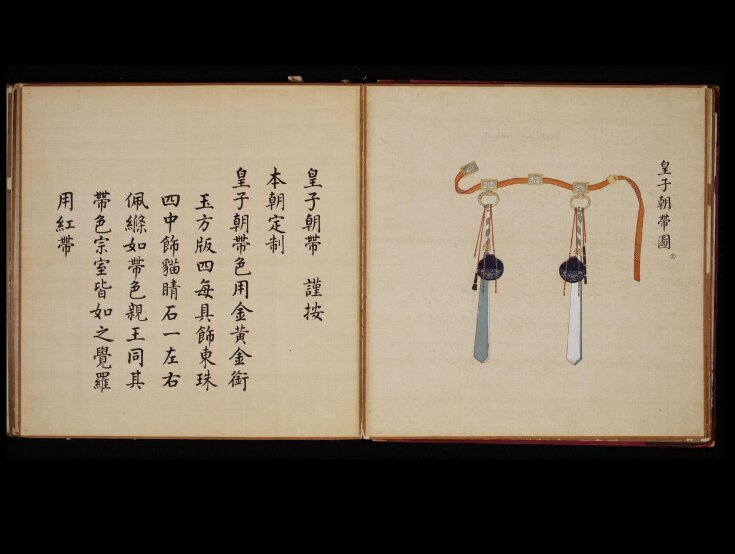 皇子朝帶圖
皇子朝帶 謹按
本朝定制
皇子朝帶色用金黃金銜
玉方版四每具飾東珠
四中飾貓睛石一左右
佩縧如帶色親王同其
帶色宗室皆如之覺羅
用紅帶